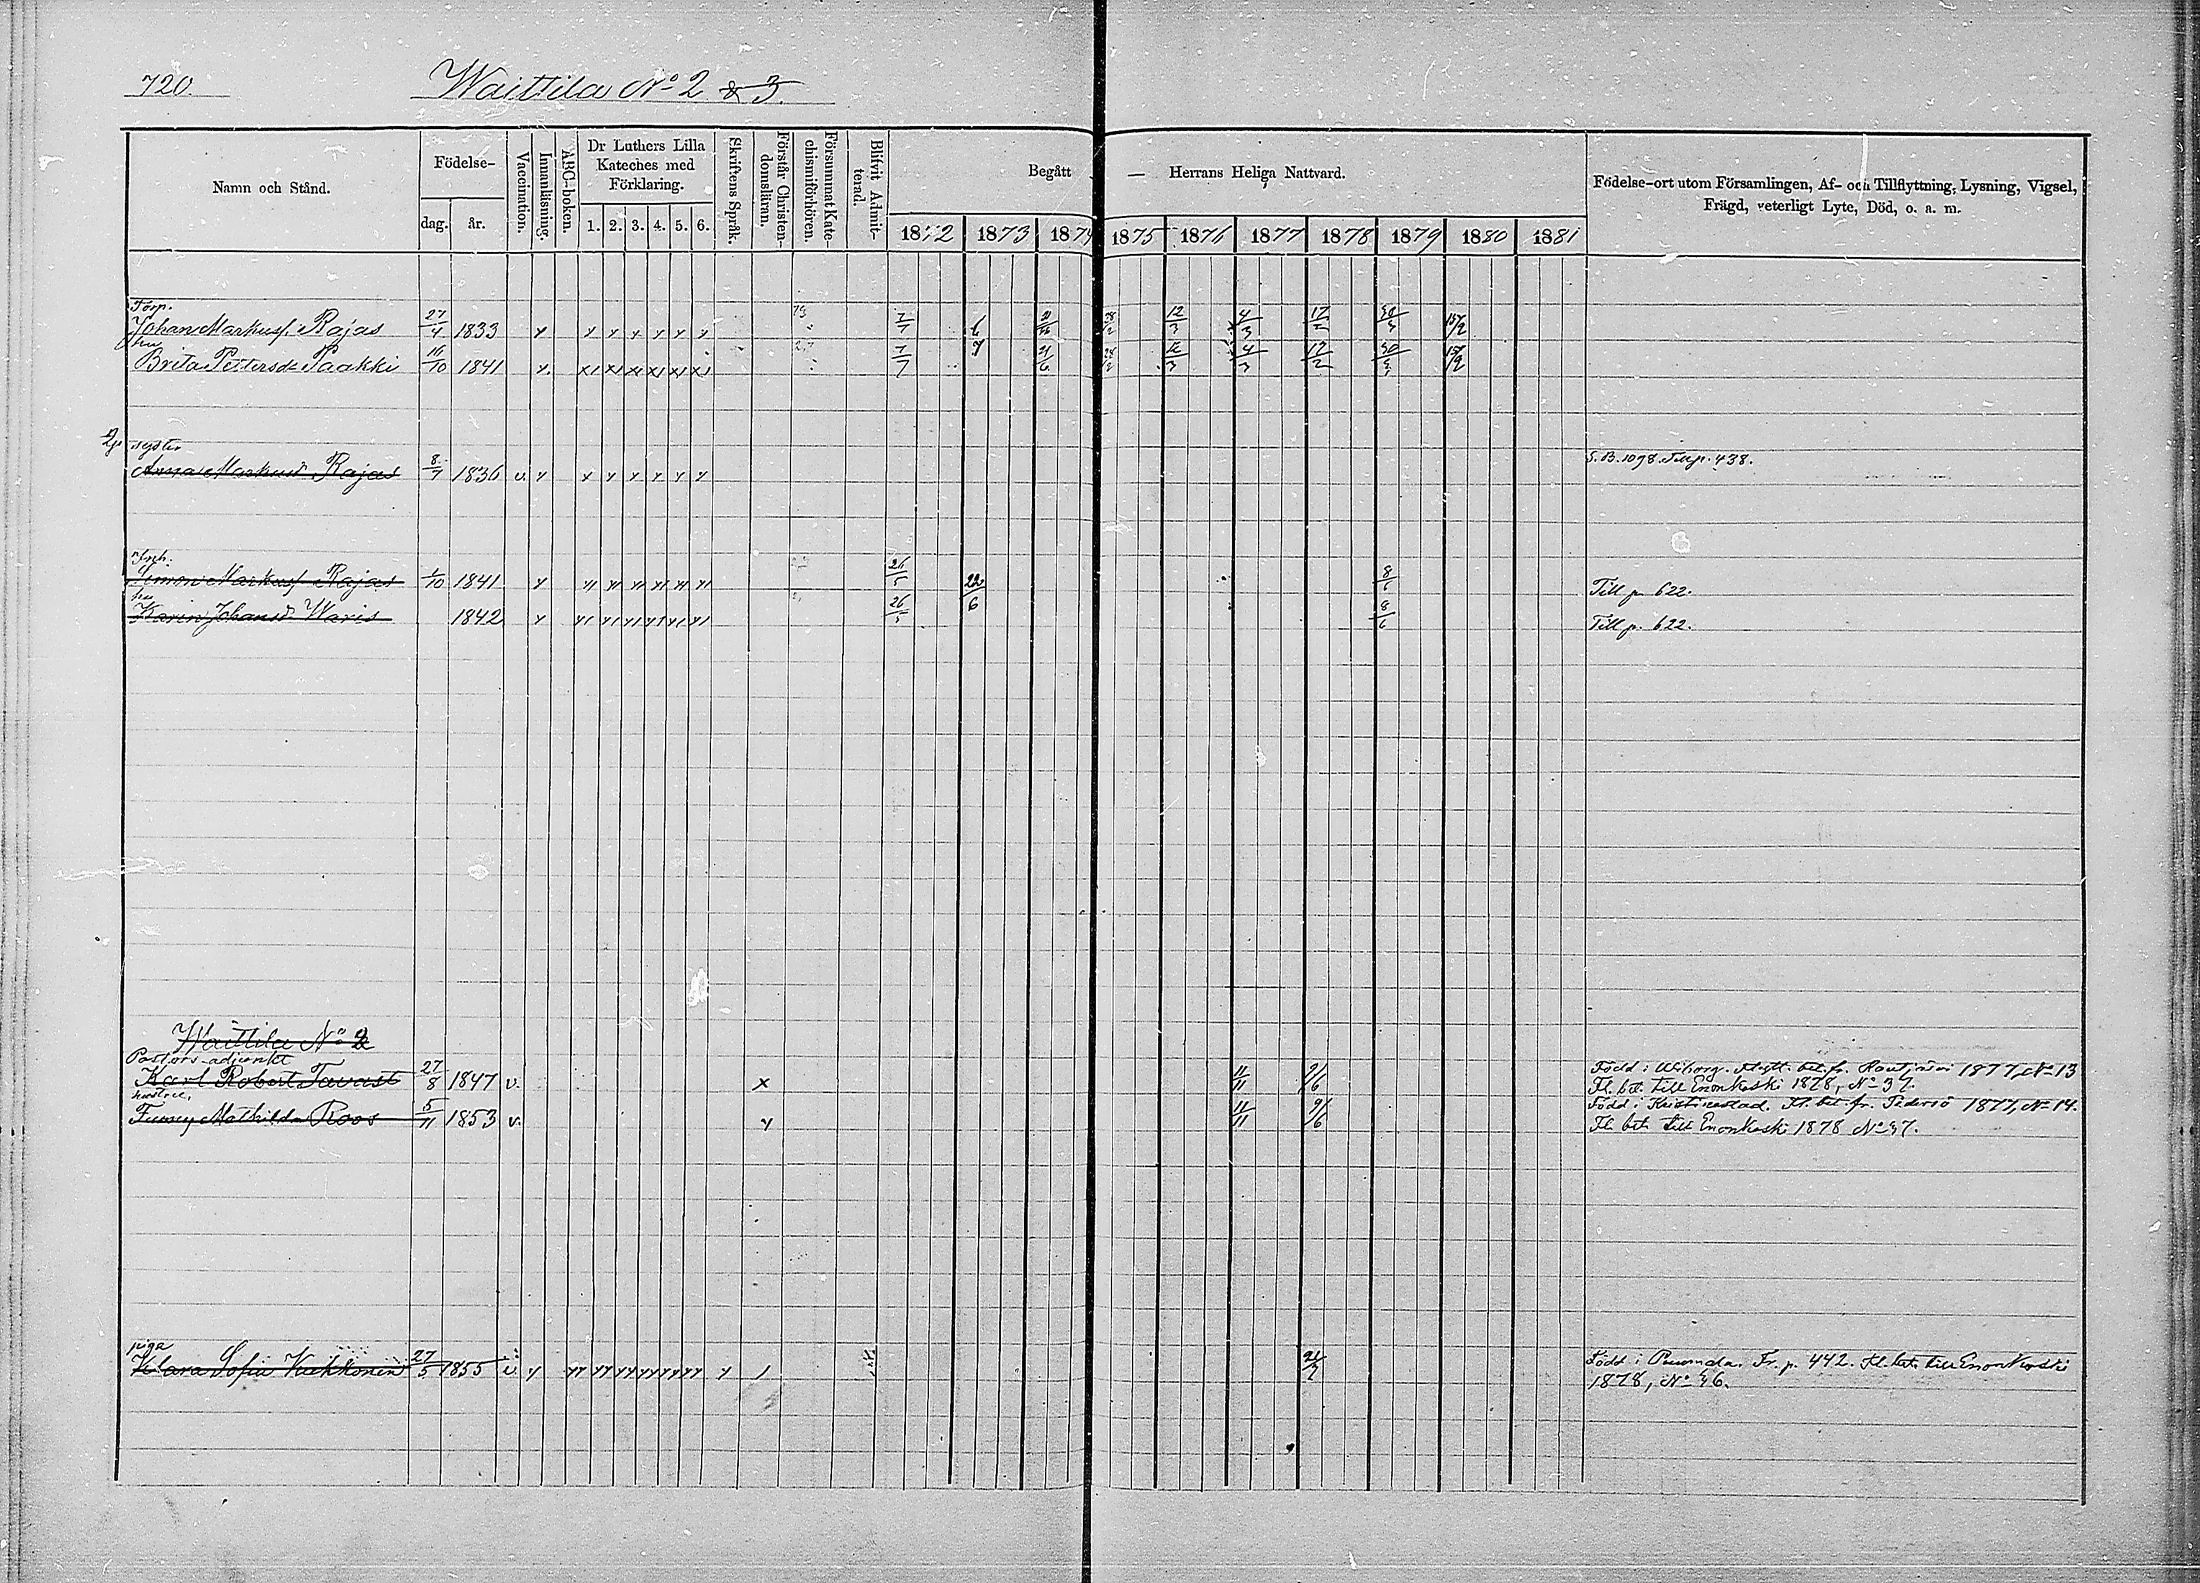 720.
Waittila No 2 & 3.
Namn och Stånd.
Födelse-
dag. år.
Vaccination.
Innanläsning.
ABC-boken.
Dr Luthers Lilla
Kateches med
Förklaring.
1. 2. 3. 4. 5. 6.
Skriftens Språk.
Förstår Christen-
domsläran.
Försummat Kate-
chismiförhören.
Blifvit Admit-
terad.
Begått — Herrans Heliga Nattvard.
1872 1873 1874 1875 1876 1877 1878 1879 1880 1881
Födelse-ort utom Församlingen, Af- och Tillflyttning, Lysning, Vigsel,
Frägd, veterligt Lyte, Död, o. a. m.
Torp.
Johan Markuss. Rajas 27/4 1833
hu
Brita Petersdr Paakki 16/10 1841
syster
Anna Markusdr Rajas 8/7 1836 v. S. B. 1098. Till p. 438.
Simon Markuss Rajas 1/10 1841 26/5 22/6 8/6 Till p. 622.
hu
Karin Johansdr Waris 1842 26/5 8/6 Till p. 622.
Waittila No 2
Pastors-adjunkt
Karl Robert Tavast 27/8 1847 v. x 11/11 9/6 Född i Wiborg. Flytt. bet. fr. Rautjärvi 1877, No 13
Fl. bet. till Enonkoski 1878, No 37.
hustru,
Fanny Mathilda Roos 5/11 1853 v. 11/11 9/6 Född i Kristinestad. Fl. bet. fr. Pedersö 1877, No 14.
Fl. bet. till Enonkoski 1878 No 37.
piga
Klara Sofia Kukkonen 27/5 1855 v. Född i Puumala. Fr. p. 442. Fl. bet. till Enonkoski
1878, No 36.